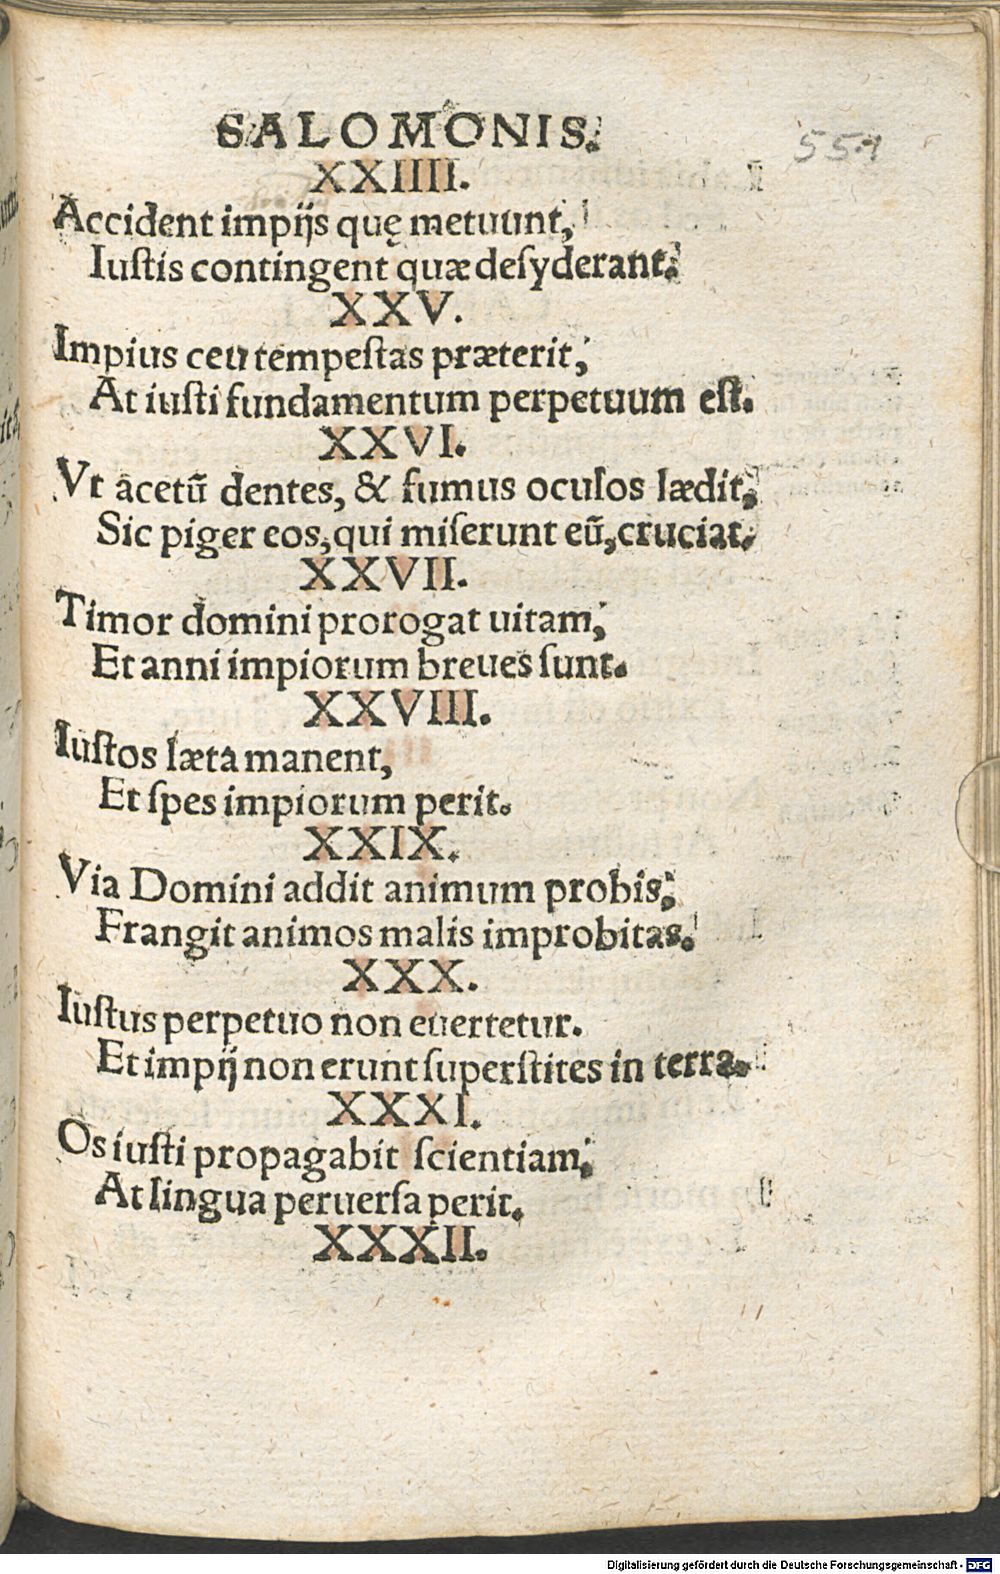 SALOMONIS.
XXIIII.
Accident impijs quę metuunt,
Iuſtis contingent quæ deſyderant.
XXV.
Impius ceu tempeſtas præterit,
At iuſti fundamentum perpetuum eſt.
XXVI.
Vt acetū dentes, & fumus oculos lædit,
Sic piger eos, qui miſerunt eū, cruciat.
XXVII.
Timor domini prorogat uitam,
Et anni impiorum breues ſunt.
XXVIII.
Iuſtos læta manent,
Et ſpes impiorum perit.
XXIX.
Via Domini addit animum probis,
Frangit animos malis improbitas.
XXX.
Iuſtus perpetuo non euertetur.
Et impij non erunt ſuperſtites in terra.
XXXI.
Os iuſti propagabit ſcientiam,
At lingua peruerſa perit.
XXXII.
Digitalisierung gefördert durch die Deutsche Forschungsgemeinschaft - DFG